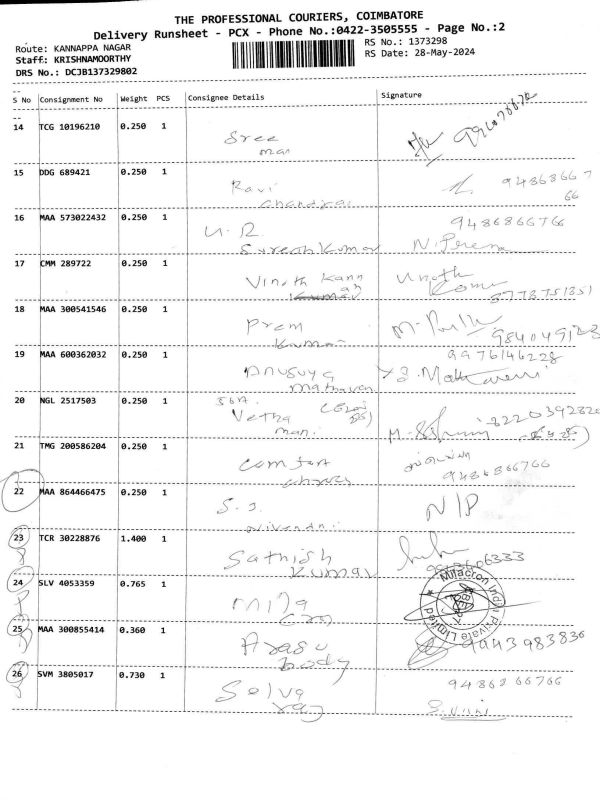 THE PROFESSIONAL COURIERS, COIMBATORE
Delivery Runsheet - PCX - Phone No.:0422-3505555 - Page No.:2
Route: KANNAPPA NAGAR
RS No.: 1373298
Staff: KRISHNAMOORTHY
RS Date: 28-May-2024
DRS No.: DCJB137329802
S No Consignment No Weight PCS Consignee Details Signature
14 TCG 10196210 0.250 1
Sree
15 DDG 689421 0.250 1
Ravi
chandran
16 MAA 573022432 0.250 1 9486866766
U. R
Suresh Kumar
17 CMM 289722 0.250 1
Vinoth Kann
18 MAA 300541546 0.250 1
Prem
Kumar
19 MAA 600362032 0.250 1 9976146228
Anusuya
20 NGL 2517503 0.250 1
Vetha
mani
21 TMG 200586204 0.250 1
Comfort
9486866766
22 MAA 864466475 0.250 1
S. S.
N/P
23 TCR 30228876 1.400 1
Sathish
Kumar
24 SLV 4053359 0.765 1
Mila
Milacron India Private Limited
25 MAA 300855414 0.360 1
Arasu 9943983836
body
26 SVM 3805017 0.730 1
Selva 9486866766
raj